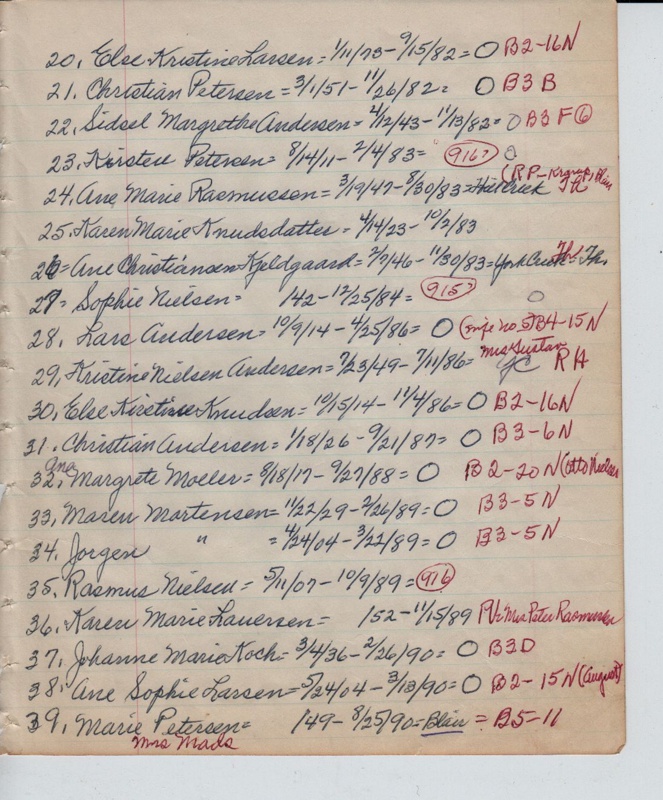 20, Else Kristine Larsen = 1/11/73 - 9/15/82 = O B2-16N
21. Christian Petersen = 3/1/51 - 11/26/82 = O B3 B
22, Sidsel Margrethe Andersen = 4/12/43 - 11/13/83 = O B3 F 6
23. Kirsten Petersen = 8/14/11 - 2/4/83 = 916? O
(RP- Blair
24. Ane Marie Rasmussen = 3/19/47 - 8/30/83 =
25. Karen Marie Knudsdatter = 4/14/23 - 10/2/83
26 = Ane Christiansen Kjeldgaard = 2/7/46 - 11/30/83 = York Creek =
27 = Sophie Nielsen = 142 - 12/25/84 = 915? O
28. Lars Andersen = 10/9/14 - 4/25/86 = O B4-15N
Mrs Gustav
29, Kristine Nielsen Andersen = 7/23/49 - 7/11/86 = RH
30. Else Kirstine Knudsen = 10/15/14 - 11/4/86 = O B2-16N
31. Christian Andersen = 1/18/26 - 9/21/87 = O B3-6N
Ana
32. Margrete Moeller = 8/18/17 - 9/27/88 = O B2-20N (Otto Nielsen
33, Maren Mortensen = 11/22/29 - 2/26/89 = O B3-5N
34. Jorgen " = 4/24/04 - 3/22/89 = O B3-5N
35. Rasmus Nielsen = 5/11/07 - 10/9/89 = 916
36. Karen Marie Lauersen = 152 - 11/15/89 Mrs Peter Rasmussen
37. Johanne Marie Koch = 3/4/36 - 2/26/90 = O B3D
38. Ane Sophie Larsen = 5/24/04 - 3/13/90 = O B2-15N (August)
39. Marie Petersen = 149 - 8/25/90 = Blair = B5-11
Mrs Mads